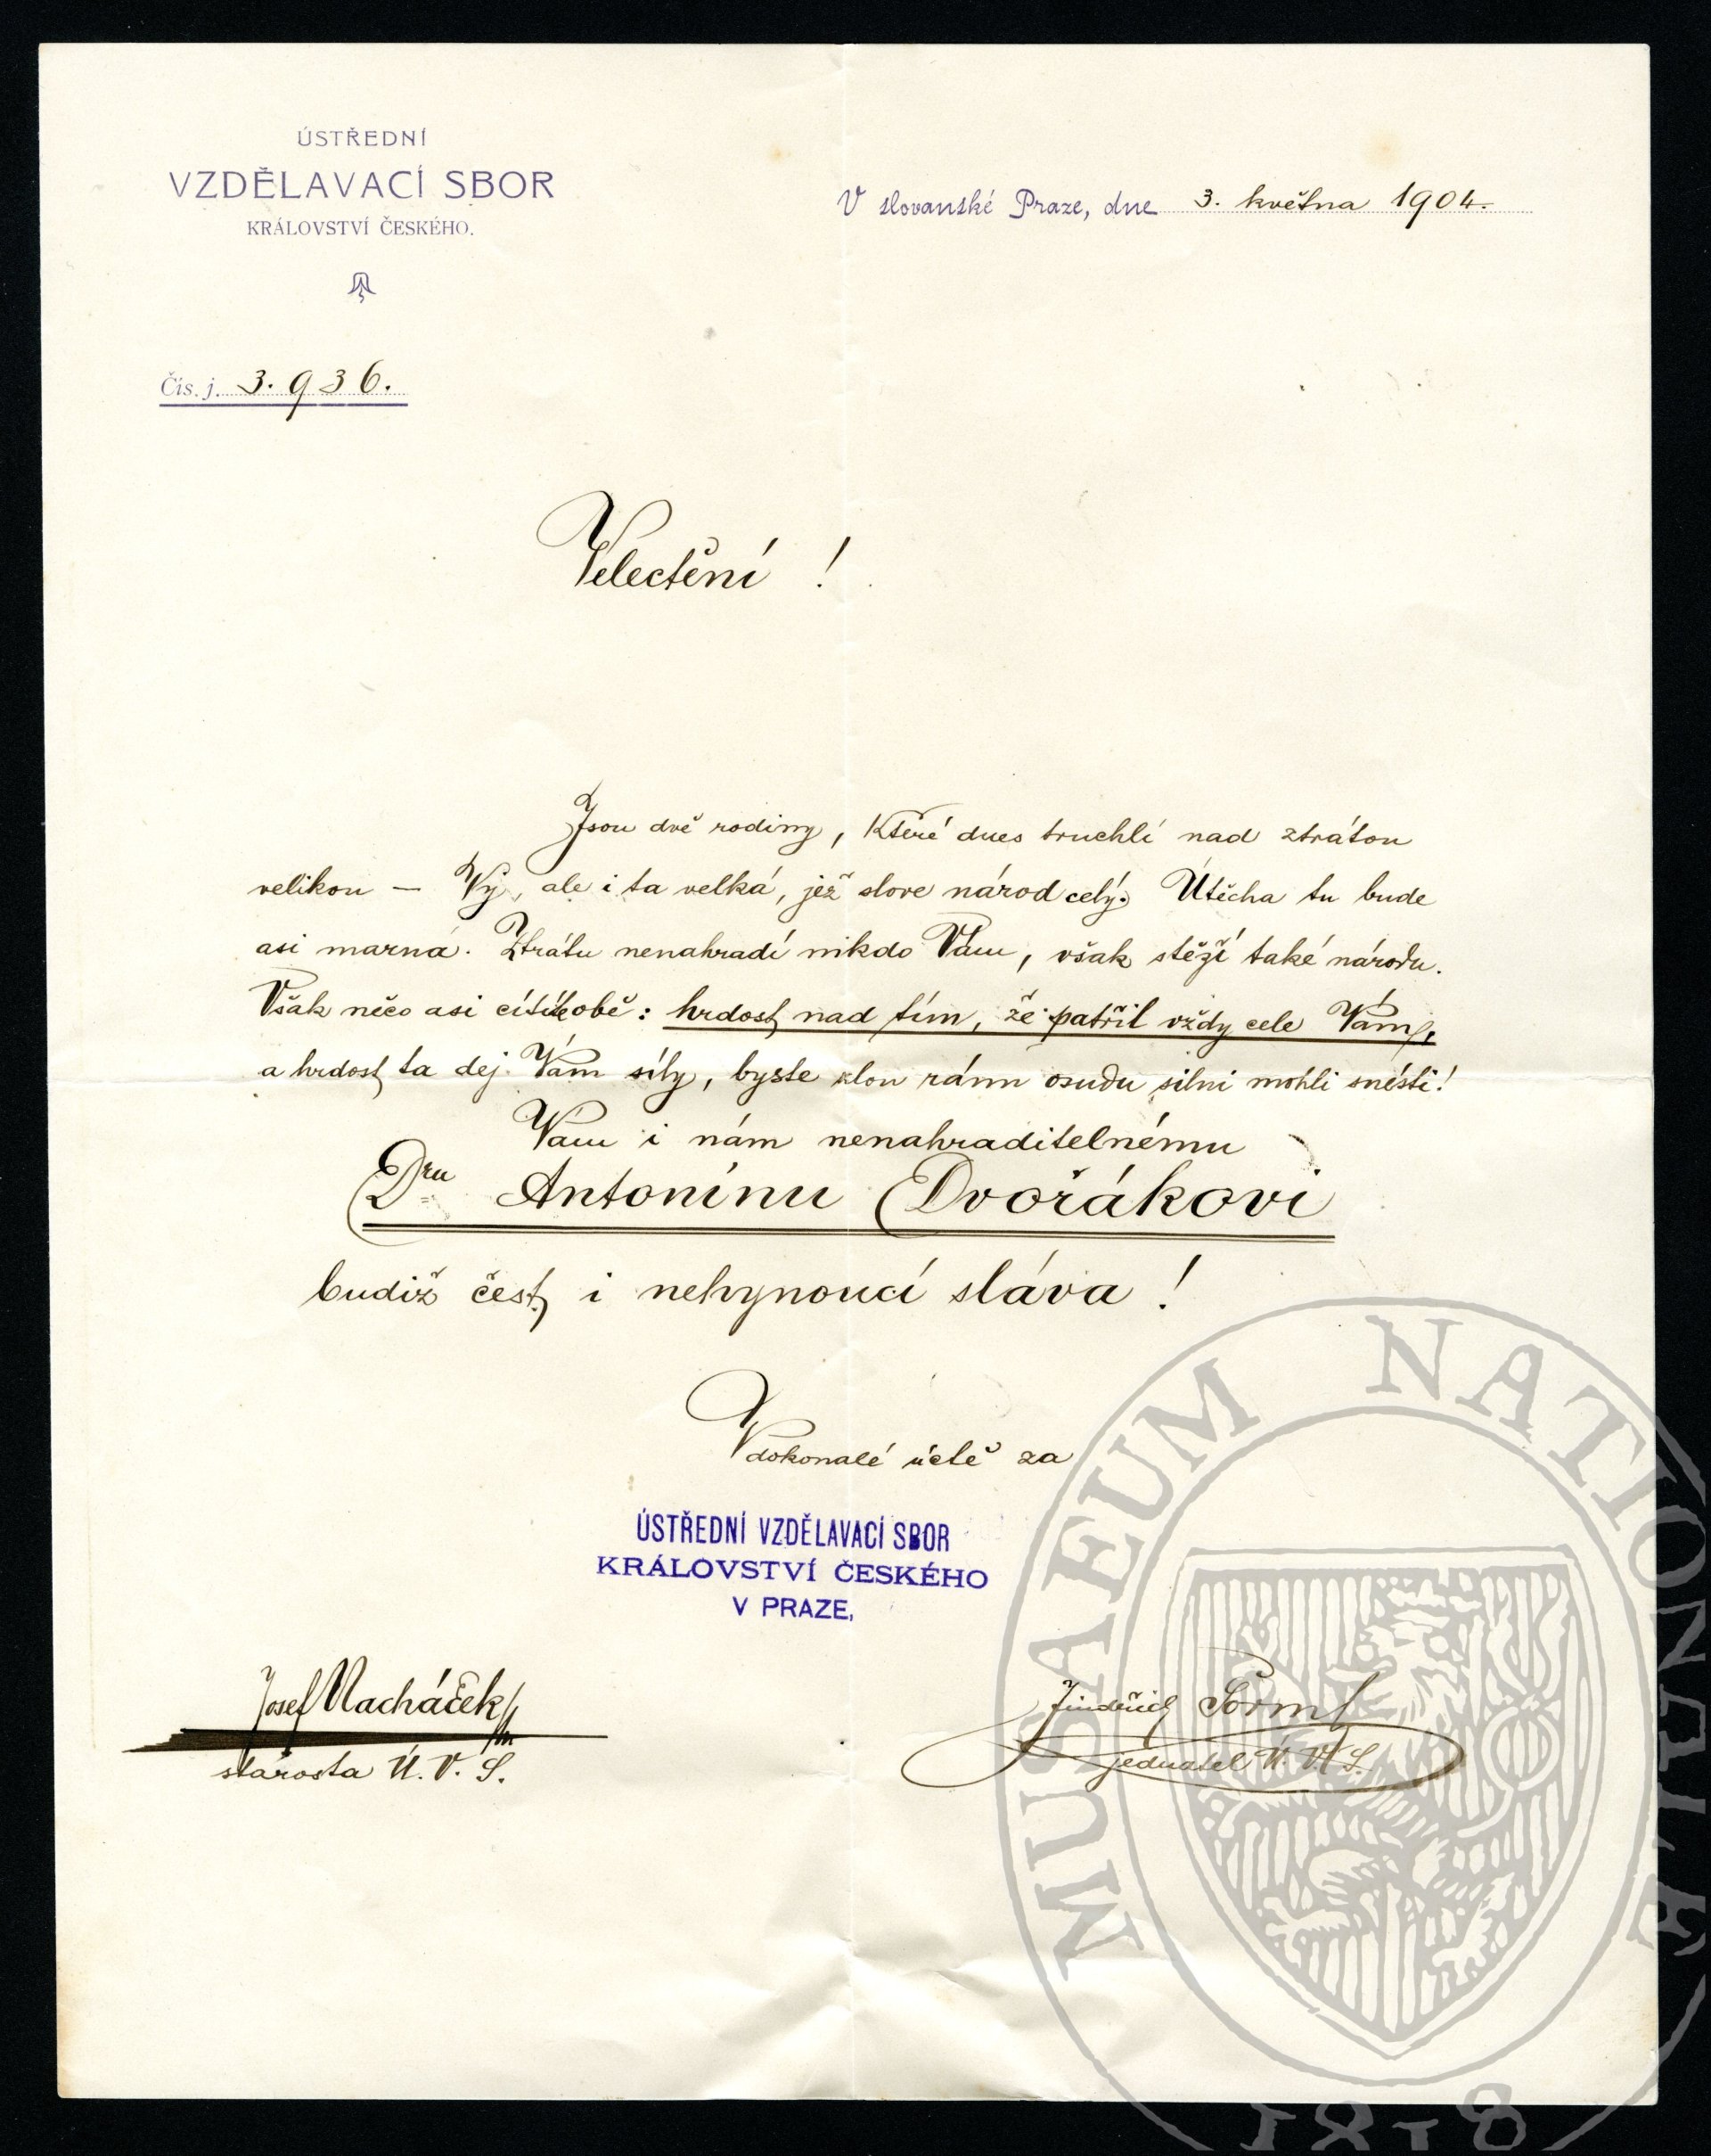 ÚSTŘEDNÍ
VZDĚLAVACÍ SBOR
KRÁLOVSTVÍ ČESKÉHO.
V slovanské Praze, dne 3. května 1904.
Čís. j. 3.936.
Velectění !
Jsou dvě rodiny, které dnes truchlí nad ztrátou
velikou — Vy, ale i ta velká, jež slove národ celý. Útěcha tu bude
asi marná. Ztrátu nenahradí nikdo Vám, však stěží také národu.
Však něco asi cítíte obě: hrdost nad tím, že patřil vždy cele Vám,
a hrdost ta dej Vám síly, byste zlou ránu osudu silni mohli snésti!
Vám i nám nenahraditelnému
Dru Antonínu Dvořákovi
budiž čest i nehynoucí sláva !
V dokonalé úctě za
ÚSTŘEDNÍ VZDĚLAVACÍ SBOR
KRÁLOVSTVÍ ČESKÉHO
V PRAZE,
Josef Macháček
starosta Ú. V. S.
Jindřich
jednatel Ú. V. S.
MUSAEUM NATIONALE
1818